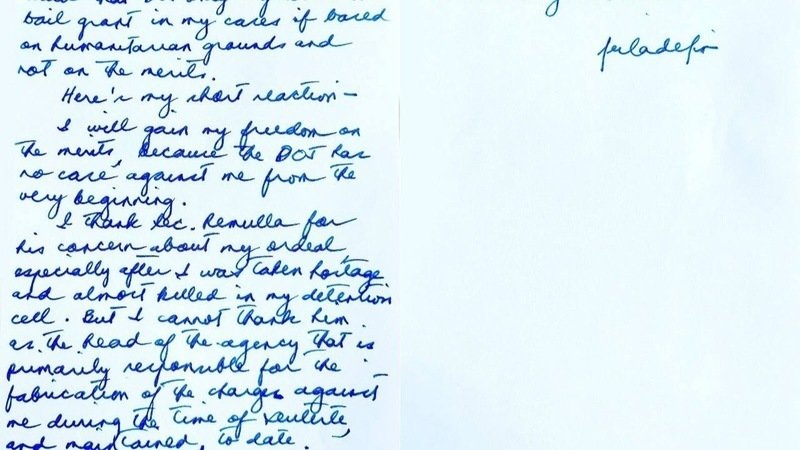 bail grant in my cases if based
on humanitarian grounds and
not on the merits.
Here's my short reaction –
I will gain my freedom on
the merits, because the DOJ has
no case against me from the
very beginning.
I thank Sec. Remulla for
his concern about my ordeal
especially after I was taken hostage
and almost killed in my detention
cell. But I cannot thank him
as the head of the agency that is
primarily responsible for the
fabrication of the charges against
me during the time of Duterte,
and maintained, to date.